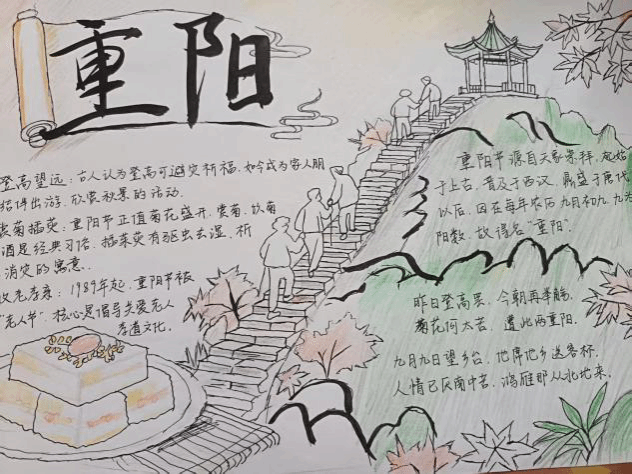 重阳
登高望远：古人认为登高可避灾祈福，如今成为客人朋
结伴出游、欣赏秋景的活动.
赏菊插萸：重阳节正值菊花盛开，赏菊、饮菊
酒是经典习俗，插茱萸有驱虫去湿、祈
消灾的寓意..
敬老孝亲：1989年起，重阳节被
"老人节"，核心是倡导关爱老人
孝道文化。
重阳节源自天象崇拜，起始
于上古，普及于西汉，鼎盛于唐代
以后，因在每年农历九月初九，九为
阳数，故得名"重阳".
昨日登高罢，今朝再举觞。
菊花何太苦，遭此两重阳。
九月九日望乡台，他席他乡送客杯。
人情已厌南中苦，鸿雁那从北地来。